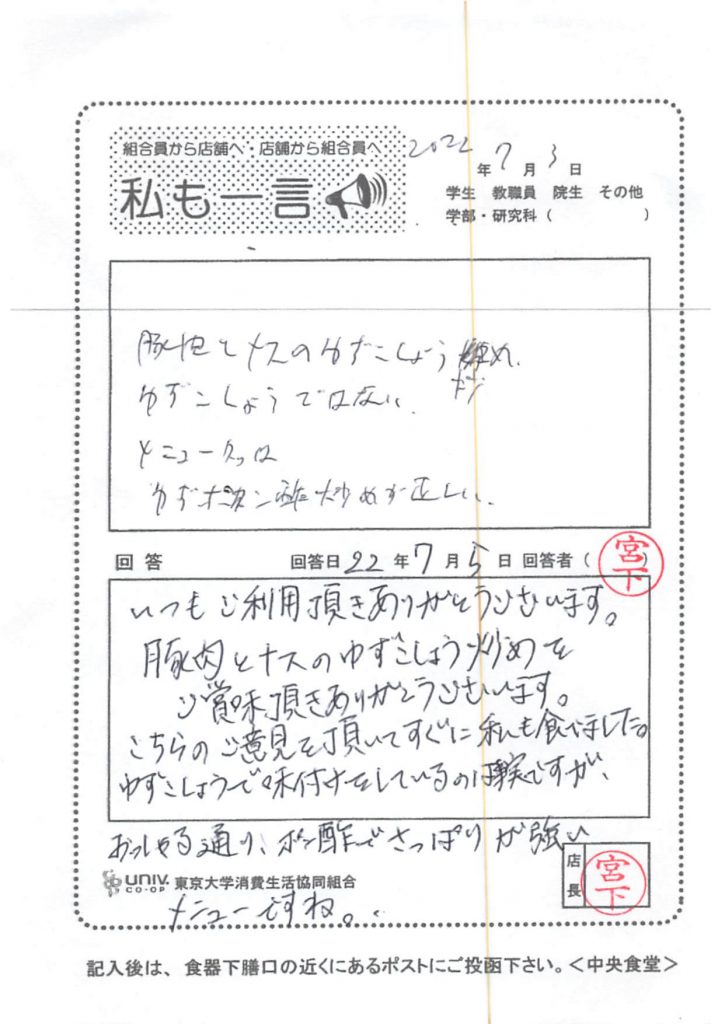 組合員から店舗へ・店舗から組合員へ
私も一言
2022年7月3日
学生 教職員 院生 その他
学部・研究科( )
豚肉とナスのゆずこしょう炒め、
ゆずこしょうではない。
メニュー名は
ゆずポン酢炒めが正しい。
回答 回答日22年7月5日 回答者(宮下)
いつもご利用頂きありがとうございます。
豚肉とナスのゆずこしょう炒めを
ご賞味頂きありがとうございます。
こちらのご意見を頂いてすぐに私も食べました。
ゆずこしょうで味付けをしているのは事実ですが、
おっしゃる通り、ポン酢でさっぱりが強い
店長 宮下
UNIV. CO-OP 東京大学消費生活協同組合
メニューですね。
記入後は、食器下膳口の近くにあるポストにご投函下さい。<中央食堂>